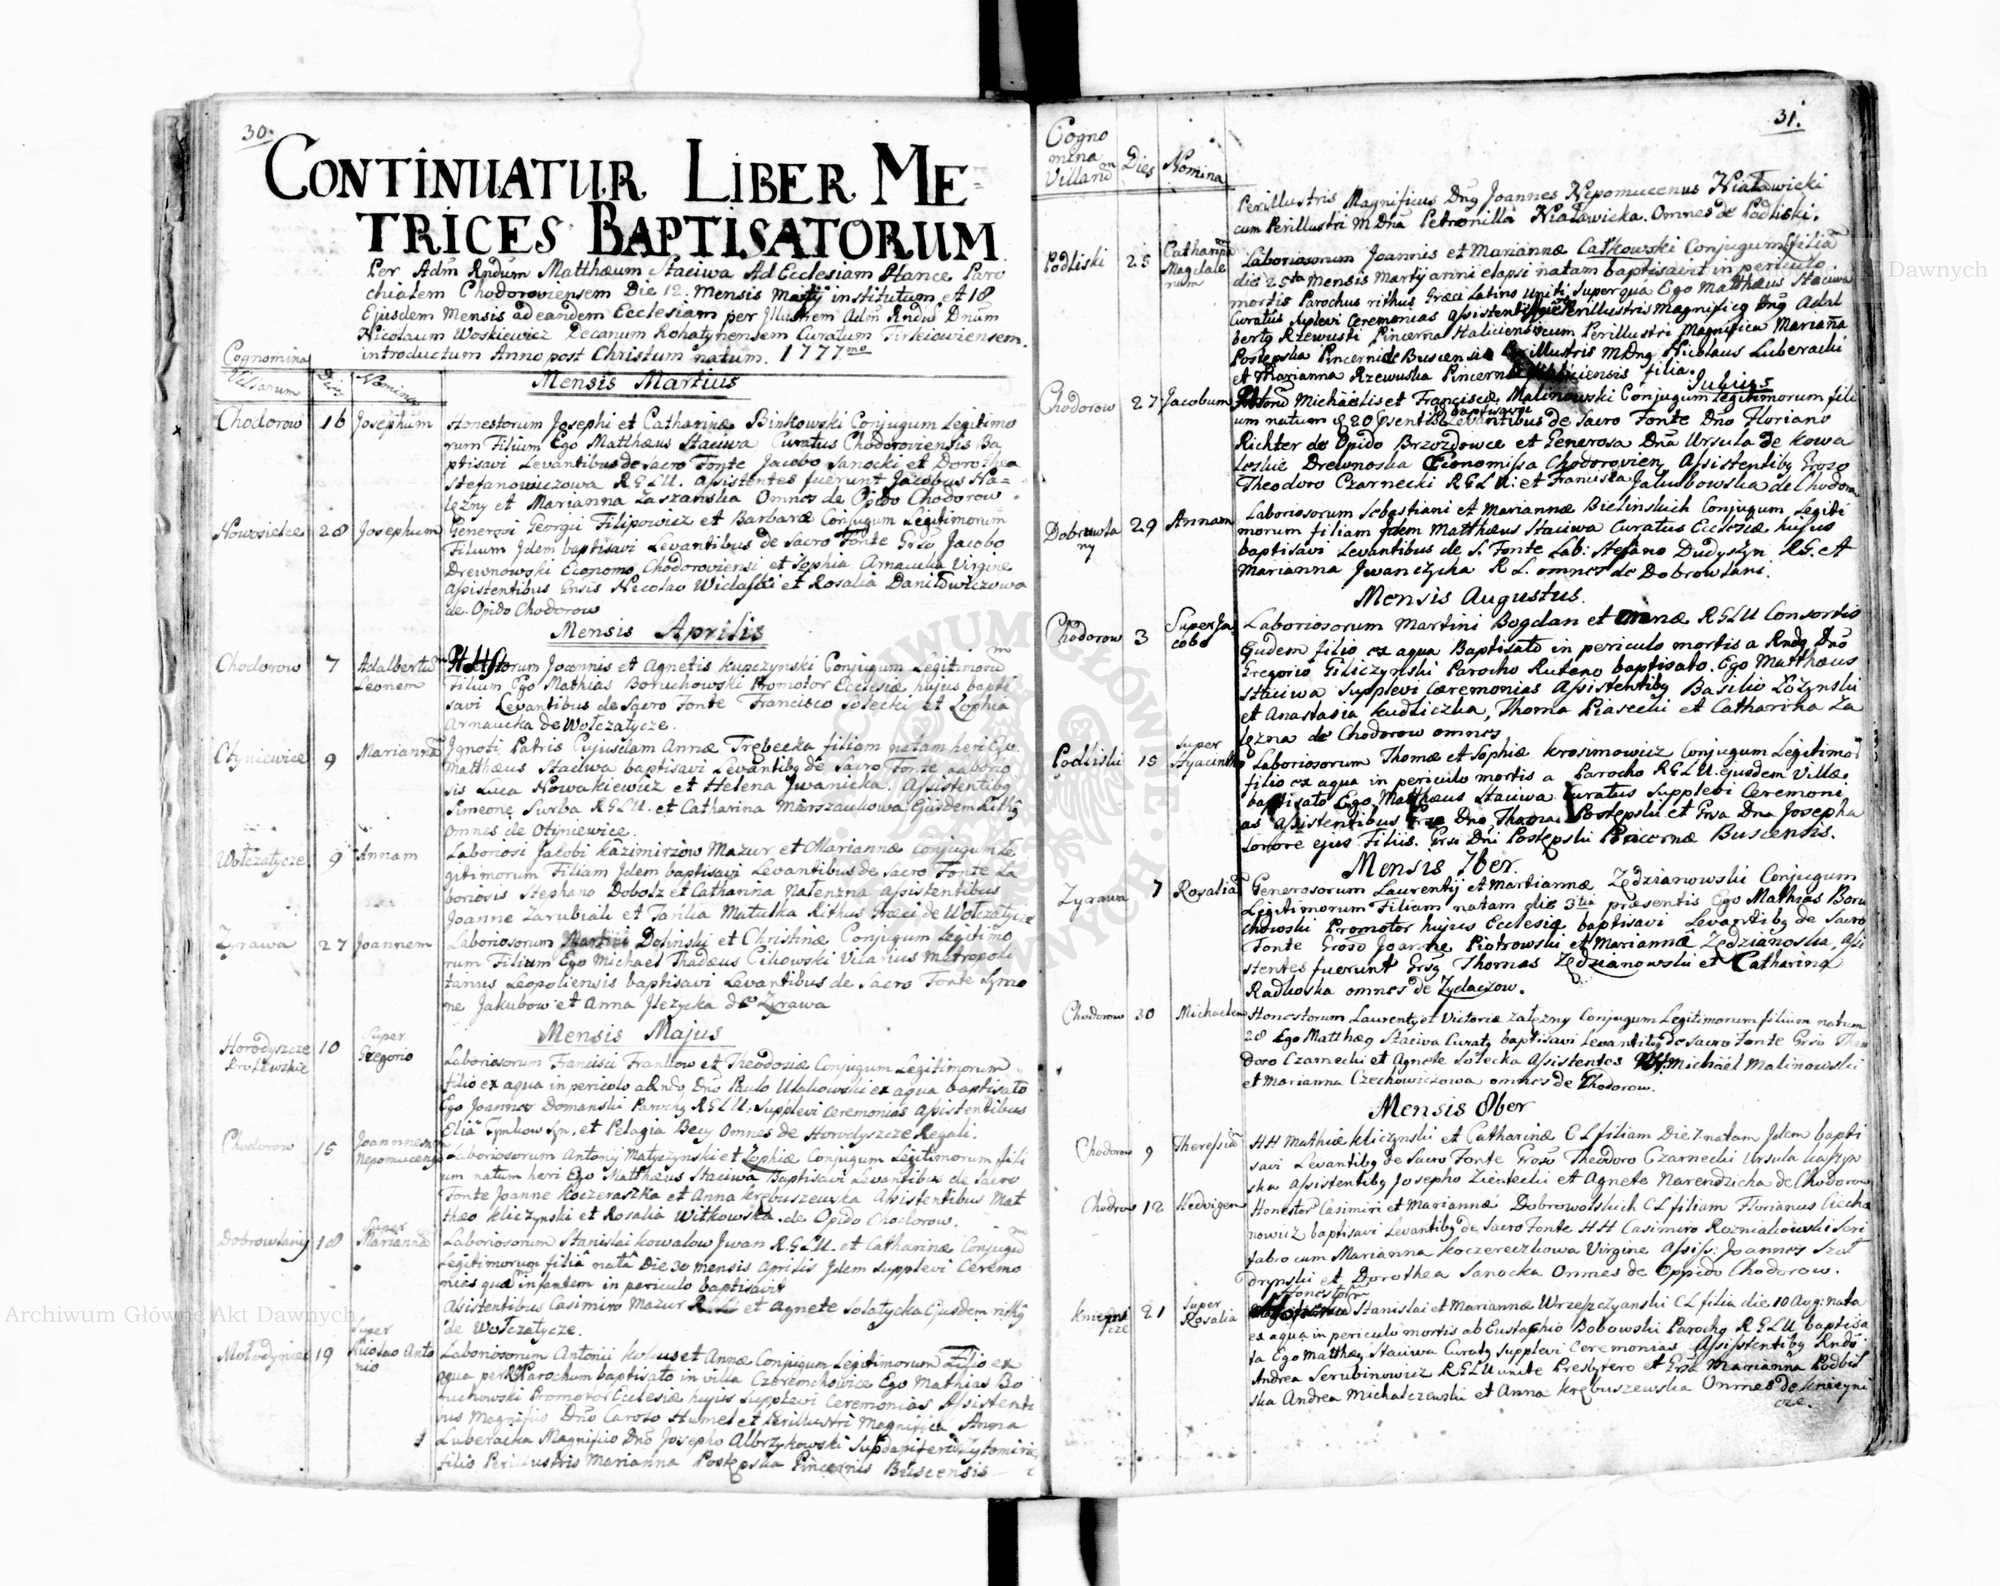 30.
CONTINUATUR LIBER ME-
TRICES BAPTISATORUM
Per Adm Rndum Matthæum Staciwa Ad Ecclesiam Hance Paro
chialem Chodoroviensem Die 12. Mensis Martij institutum, et 18
Ejusdem Mensis ad eandem Ecclesiam per Illustrem Adm Rndu Dnum
Nicolaum Woskiewicz Decanum Rohatynensem Curatum Firleiowiensem.
introductum Anno post Christum natum. 1777mo
Cognomina
Villarum Dies Nomina
Mensis Martius
Chodorow 16 Josephum
Honestorum Josephi et Catharinæ Binkowski Conjugum Legitimo
rum Filium Ego Matthæus Staciwa Curatus Chodoroviensis Ba
ptisavi Levantibus de Sacro Fonte Jacobo Sanocki et Dorothea
Stefanowiczowa R G L U. Assistentes fuerunt Jacobus Na=
lezny et Marianna Zaszanska Omnes de Opido Chodorow.
Nowosielce 28 Josephum
Generosi Georgii Filipowicz et Barbaræ Conjugum Legitimorum
Filium Jdem baptisavi Levantibus de Sacro Fonte Grso Jacobo
Drewnowski Economo Chodoroviensi et Sophia Arnaucka Virgine
Assistentibus Grsis Nicolao et Rosalia Danilowiczowa
de Opido Chodorow
Mensis Aprilis
Chodorow 7 Adalbertum Leonem
Joannis et Agnetis Kupczynski Conjugum Legitimorum
Filium Ego Mathias Boruchowski Promotor Ecclesiæ hujus bapti
savi Levantibus de Sacro Fonte Francisco Solecki et Zophia
Arnaucka de Wołczatycze.
Otyniewice 9 Mariannam
Ignoti Patris Cujusdam Annæ Trębecka filiam natam heri Ego
Matthæus Staciwa baptisavi Levantibg de Sacro Fonte Laborio
sis Luca Nowakiewicz et Helena Jwanicka. Assistentibg
Simeone Surba R G L U. et Catharina Marszaukowa Ejusdem Rithg
Omnes de Otyniewice.
Wołczatycze 9 Annam
Laboriosi Jacobi Kazimirzow Mazur et Mariannæ Conjugum Le
gitimorum Filiam Jdem baptisavi Levantibus de Sacro Fonte La
boriosis Stephano Dobolz et Catharina Natenzna Assistentibus
Joanne Zarubiak et Tańia Matulka Rithus Græci de Wołczatycze
Zyrawa 27 Joannem
Laboriosorum Martini Dolinski et Christinæ Conjugum Legitimo
rum Filium Ego Michael Thadæus Cikowski Vicarius Metropoli
tanus Leopoliensis baptisavi Levantibus de Sacro Fonte Symo
ne Jakubow et Anna Jlczycka de Zyrawa
Mensis Majus
Horodyszcze Krolewskie 10 Super Gregorio
Laboriosorum Francisci Frankow et Theodosiæ Conjugum Legitimorum
filio ex aqua in periculo a Rndo Dno Paulo Ulakowski ex aqua baptisato
Ego Joannes Domanski Parochg R G L U: Supplevi ceremonias Assistentibus
Elia Tymkow Syn. et Pelagia Becy Omnes de Horodyszcze Regali.
Chodorow 15 Joannnem Nepomucenum
Laboriosorum Antonij Matyszynski et Zophiæ Conjugum Legitimorum fili
um natum heri Ego Matthæus Staciwa Baptisavi Levantibus de Sacro
Fonte Joanne Koczeraszka et Anna Krębuszewska Assistentibus Mat
thæo Kliczynski et Rosalia Witkowska. de Opido Chodorow.
Dobrowlany 18 Super Mariannâ
Laboriosorum Stanislai Kowalow Jwan R.G L U. et Catharinæ Conjugum
Legitimorum filiâ natâ Die 30 mensis Aprilis Jdem Supplevi Ceremo
nias quæ infantem in periculo baptisavit
Assistentibus Casimiro Mazur et Agnete Solatycka Ejusdem rithg
de Wołczatycze.
Mołodynice 19 Super Nicolao Antonio
Laboriosorum Antonii et Annæ Conjugum Legitimorum Filio ex
aqua per Parochum baptisato in villa Czeremchowice Ego Mathias Bo
ruchowski Promotor Ecclesiæ hujus Supplevi Ceremonias Assistenti
bus Magnifico Dno Carolo Humel et Perillustri Magnifica Anna
Luberacka Magnifico Dno Josepho Albrzykowski Subdapiferi Zytomirien
filio Perillustris Marianna Postępska Pincernis Buscensis
31.
Cognomina Villarum Dies Nomina
Perillustris Magnificus Dng Joannes Nepomucenus Niaławicki
cum Perillustri M Dna Petronilla Niaławicka. Omnes de Podliski.
Podliski 25 Catharinam Magdalenam
Laboriosorum Joannis et Mariannæ Catkowski Conjugum filia
die 25ta Mensis Martij anni elapsi natam baptisavit in periculo
mortis Parochus rithus Græci Latino Uniti, Super qua Ego Matthæus Staciwa
Curatus Suplevi Ceremonias Assistentibus Perillustris Magnifico Dng Adal
bertg Rzewuski Pincerna Haliciensis cum Perillustri Magnifica Marianna
Postepska Pincernide Buscensis Perillustris M Dng Nicolaus Luberacki
et Marianna Rzewuska Pincerni Haliciensis filia.
Julius
Chodorow 27 Jacobum
Michaelis et Franciscæ Malinowski Conjugum Legitimorum fili
um natum d 20 Psentis baptisavi Levantibus de Sacro Fonte Dno Floriano
Richter de Opido Brzozdowce et Generosa Dna Ursula de Kowa
leskie Drewnoska Œconomissa Chodorovien Assistentibg Groso
Theodoro Czarnecki R G L U: et Franciska Jakubowska de Chodorow
Dobrowlany 29 Annam
Laboriosorum Sebastiani et Mariannæ Bielinskich Conjugum Legiti
morum filiam Jdem Matthæus Staciwa Curatus Ecclesiæ hujus
baptisavi Levantibus de S. Fonte Lab: Stefano Dudyszyn R G. et
Marianna Jwanczycha R L. omnes de Dobrowlani.
Mensis Augustus.
Chodorow 3 Super Jacobo
Laboriosorum Martini Bogdan et Annæ R G L U Consortis
Ejudem filio ex aqua Baptisato in periculo mortis a Rndo Dno
Gregorio Giliczynski Parocho Ruteno baptisato. Ego Matthæus
Staciwa Supplevi Cæremonias Assistentibg Basilio Łozynski
et Anastasia Kudliczka, Thoma Piasecki et Catharina Za
lęzna de Chodorow omnes
Podliski 15 Super Hyacintho
Laboriosorum Thomæ et Sophiæ Krosimowicz Conjugum Legitimor
filio ex aqua in periculo mortis a Parocho R G L U. ejusdem Villæ.
baptisato Ego Matthæus Staciwa Curatus Supplevi Ceremoni
as Assistentibus Grso Dno Thoma Postępski et Grsa Dna Josepha
Sorore ejus Filiis. Grsi Dni Postępski Pincernæ Buscensis.
Mensis 7ber.
Zyrawa 7 Rosaliam
Generosorum Laurentij et Martiannæ Zędzianowski Conjugum
Legitimorum Filiam natam die 3tia præsentis Ego Mathias Boru
chowski Promotor hujus Ecclesiæ baptisavi Levantibg de Sacro
Fonte Groso Joanne Piotrowski et Mariannâ Zędzianoska, Assi
stentes fuerunt Grsg Thomas Zędzianowski et Catharina
Radkoska omnes de Zydaczow.
Chodorow 30 Michaelem
Honestorum Laurentij et Victoriæ Zalęzny Conjugum Legitimorum filium natum
28 Ego Matthæg Staciwa Curatg baptisavi Levantibg de Sacro Fonte Grso Theo
doro Czarnecki et Agnete Solecka Assistentes Michaël Malinowski
et Marianna Czechowiczowa omnes de Chodorow.
Mensis 8ber
Chodorow 9 Theressiam
H H Mathiæ Kliczynski et Catharinæ C L filiam Die 7 natam Jdem bapti
savi Levantibg de Sacro Fonte Groso Theodoro Czarnecki Ursula Kaszyn
ska Assistentibg Josepho Zientecki et Agnete Narendzicha de Chodorow
Chodrow 12 Hedvigem
Honestor Casimiri et Mariannæ Dobrowolskich C L filiam Florianus Ciecha
nowicz baptisavi Levantibg de Sacro Fonte H H Casimiro Rozniakowski Seri
fabro cum Marianna Koczereczkowa Virgine Assiss: Joannes Szot
drynski et Dorothea Sanocka Omnes de Oppido Chodorow.
Kniepicze 21 Super Rosalia
Honestorum
Stanislai et Mariannæ Wrzepczyanski C L filia die 10 Aug: nata
ex aqua in periculo mortis ab Eustaphio Bobowski Parochg R G L U baptisa
ta Ego Matthæg Staciwa Curatg Supplevi Ceremonias Assistentibg Rndo
Andrea Serubinowicz R G L U unite Presbytero et Grsa Marianna Podbil
ska Andrea Michalczewski et Anna Krębuszewska Omnes de Knieyni
cze.
Archiwum Główne Akt Dawnych